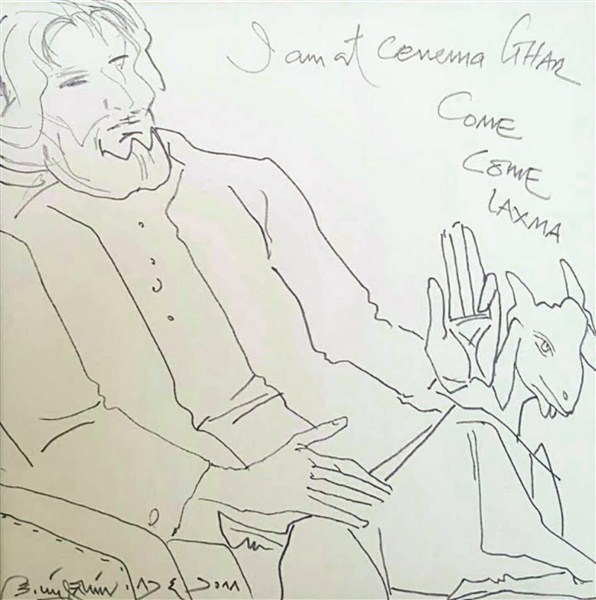 I am at cenema GHAR
COME
COME
LAXMA